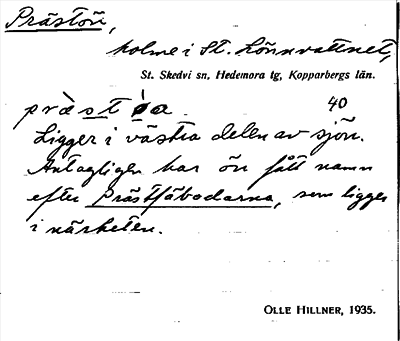 Prästön,
holme i St. Lönnvattnet,
St. Skedvi sn, Hedemora tg, Kopparbergs län.
præ̀st ö́a. 40
Ligger i västra delen av sjön.
Antagligen har ön fått namn
efter Prästfäbodarna, som ligger
i närheten.
OLLE HILLNER, 1935.